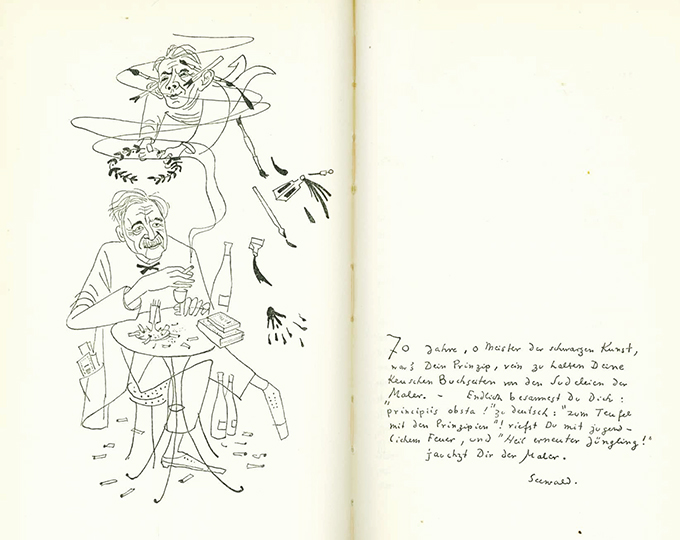 70 Jahre, o Meister der schwarzen Kunst,
war's Dein Prinzip, rein zu halten Deine
keuschen Buchseiten von den Sudeleien der
Maler. – Endlich besannest Du Dich:
"principiis obsta!" zu deutsch: "zum Teufel
mit den Prinzipien"! riefst Du mit jugend-
lichem Feuer, und "Heil erneuter Jüngling!"
jauchzt Dir der Maler.
Seewald.